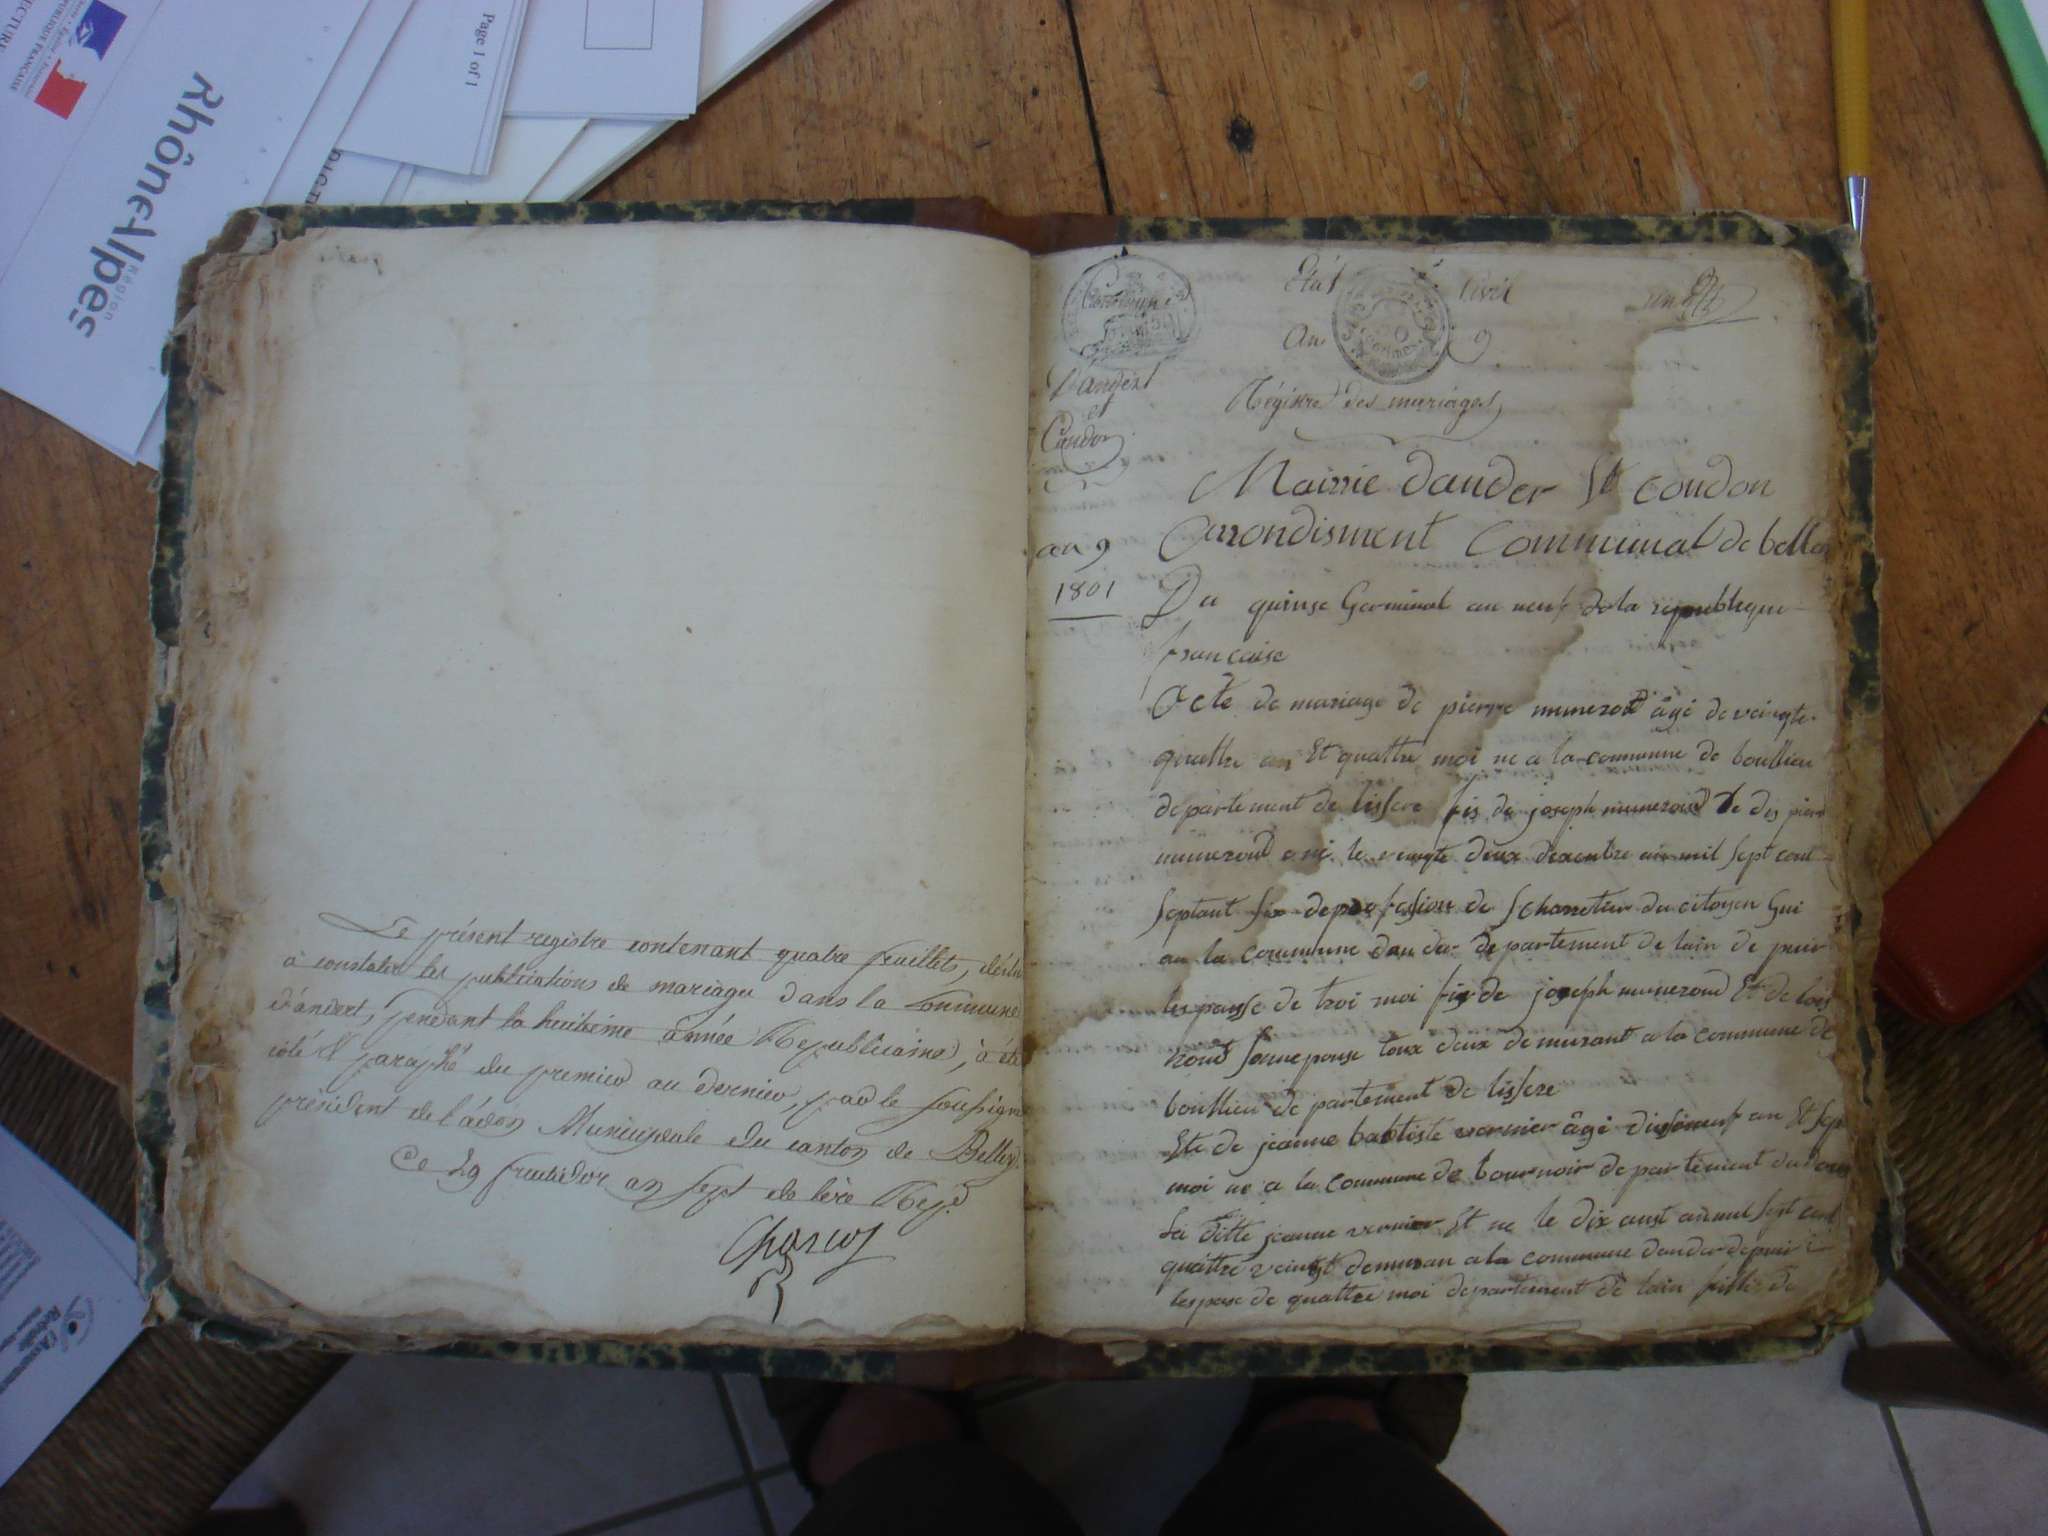 RÉPUBLIQUE FRANÇAISE
Rhône-Alpes
Région
Page 1 of 1
Le présent registre contenant quatre feuillets, destiné
à constater les publications de mariages dans la Commune
d'andert, pendant la huitième année Republicaine, à été
coté & paraphé du premier au dernier, par le soussigné
président de l'adon Municipale du canton de Belley.
Ce 29 fructidor an sept de l'ère Rep.
Commune
D'andert
et
Condon
an 9
1801
Etat civil
An 9
Régistre des mariages
Mairie dander St condon
Arrondisment Communal de belley
Du quinse Germinal an neuf de la republique
francaise
Acte de mariage de pierre munezoud âgé de veingte
quattre an Et quattre moi ne a la commune de boullieu
departement de lissere fis de joseph munezoud
munezoud le veingte deux an mil sept cent
septant six de profession de scharretier du citoyen Gui
au la commune dander departement de lain de puis
lespasse de troi moi fis de joseph munezoud Et de
zoud toux deux demurant a la commune de
boullieu departement de lissere
Ete de jeanne babtiste vernier âgé diseneuf an Et sep
moi ne a la commune de tournoir departement du
La ditte jeanne vernier Et ne le dix aust an mil sept cent
quattre veingt demuran a la commune dander depuis
lespase de quattre moi departement de lain fille de